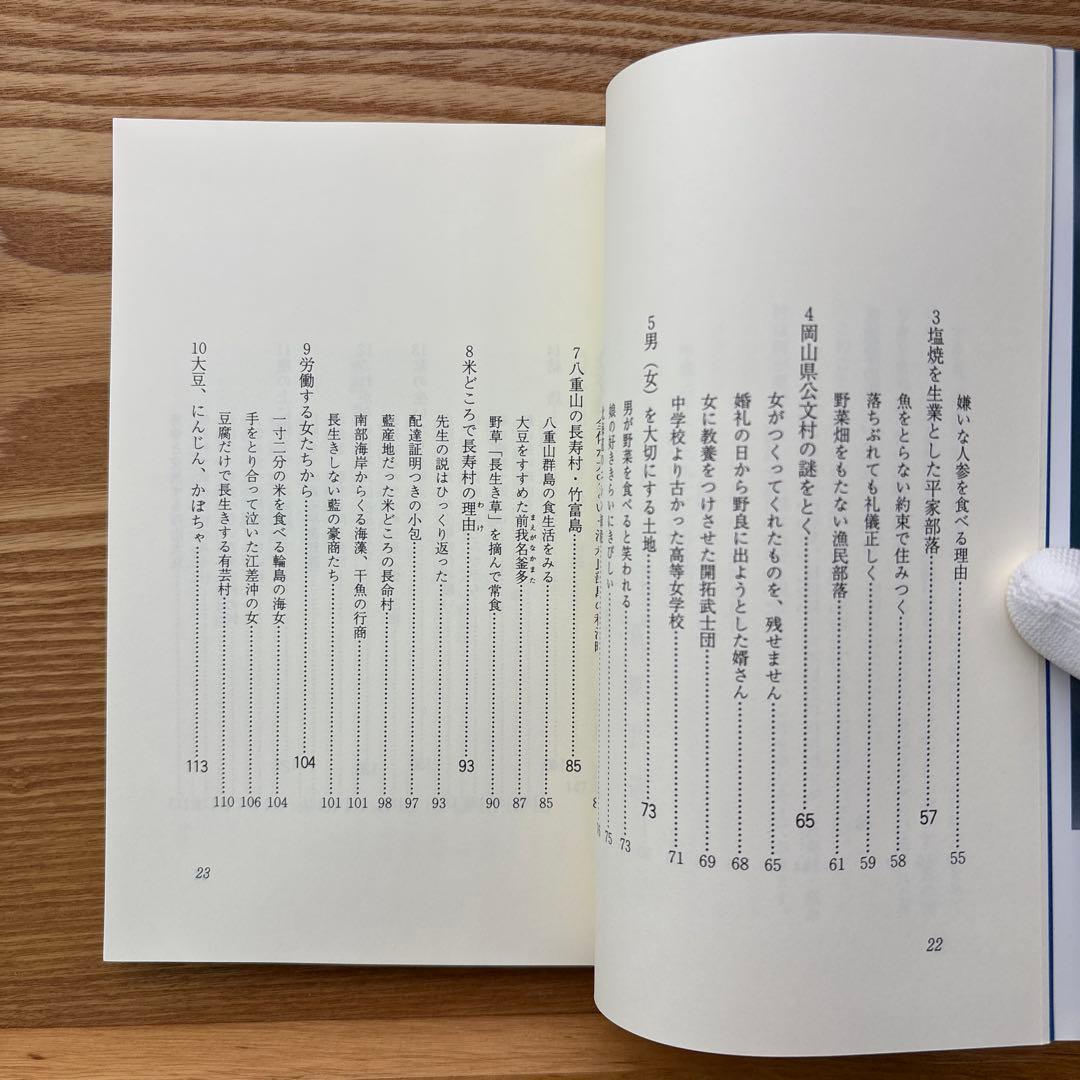 嫌いな人参を食べる理由……55
3 塩焼を生業とした平家部落……57
魚をとらない約束で住みつく……58
落ちぶれても礼儀正しく……59
野菜畑をもたない漁民部落……61
4 岡山県公文村の謎をとく……65
女がつくってくれたものを、残せません……65
婚礼の日から野良に出ようとした婿さん……68
女に教養をつけさせた開拓武士団……69
中学校より古かった高等女学校……71
5 男(女)を大切にする土地……73
男が野菜を食べると笑われる……73
娘の好ききらいにきびしい……75
22
7 八重山の長寿村・竹富島……85
八重山群島の食生活をみる……85
大豆をすすめた前我名釜多……87
まえがなかまた
野草「長生き草」を摘んで常食……90
8 米どころで長寿村の理由……93
わけ
先生の説はひっくり返った……93
配達証明つきの小包……97
藍産地だった米どころの長命村……98
南部海岸からくる海藻、干魚の行商……101
長生きしない藍の豪商たち……101
9 労働する女たちから……104
一寸二分の米を食べる輪島の海女……104
手をとり合って泣いた江差沖の女……106
豆腐だけで長生きする有芸村……110
10 大豆、にんじん、かぼちゃ……113
23